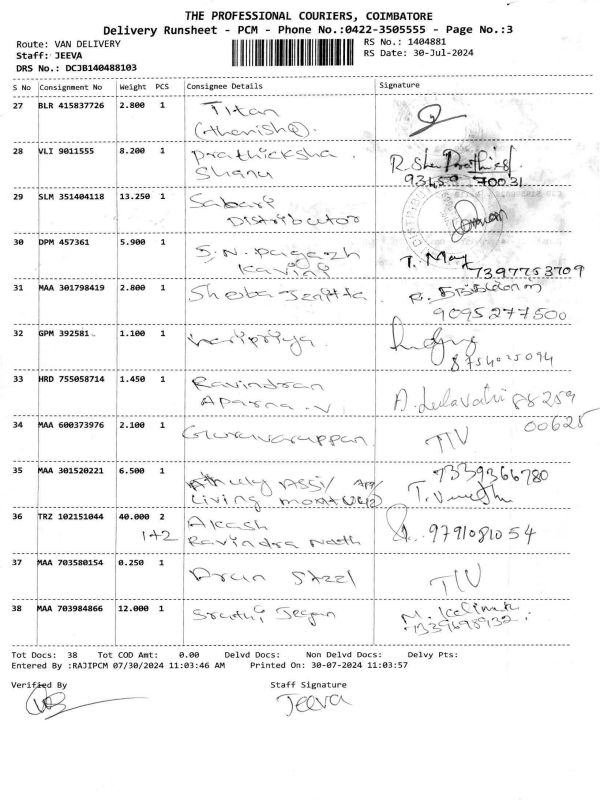 THE PROFESSIONAL COURIERS, COIMBATORE
Delivery Runsheet - PCM - Phone No.:0422-3505555 - Page No.:3
Route: VAN DELIVERY RS No.: 1404881
Staff: JEEVA RS Date: 30-Jul-2024
DRS No.: DCJB140488103
S No Consignment No Weight PCS Consignee Details Signature
27 BLR 415837726 2.800 1 Titan
28 VLI 9011555 8.200 1 Prathicksha
Shanu
93459 70031
29 SLM 351404118 13.250 1 Sabari
Distributor
30 DPM 457361 5.900 1 S.N. Pagazh T. May
Kavini 7397753709
31 MAA 301798419 2.800 1 Sheba Jenitta
9095277500
32 GPM 392581 1.100 1 Haripriya
8754025094
33 HRD 755058714 1.450 1 Ravindran
Aparna .V A. Leelavathi 88259
00625
34 MAA 600373976 2.100 1 Guruvaruppan TIV
35 MAA 301520221 6.500 1 7339366780
Living
36 TRZ 102151044 40.000 2 Akash 9791081054
1+2 Ravindra Nath
37 MAA 703580154 0.250 1 Arun Steel TIV
38 MAA 703984866 12.000 1 Jegan
7339698932
Tot Docs: 38 Tot COD Amt: 0.00 Delvd Docs: Non Delvd Docs: Delvy Pts:
Entered By :RAJIPCM 07/30/2024 11:03:46 AM Printed On: 30-07-2024 11:03:57
Verified By Staff Signature
Jeeva